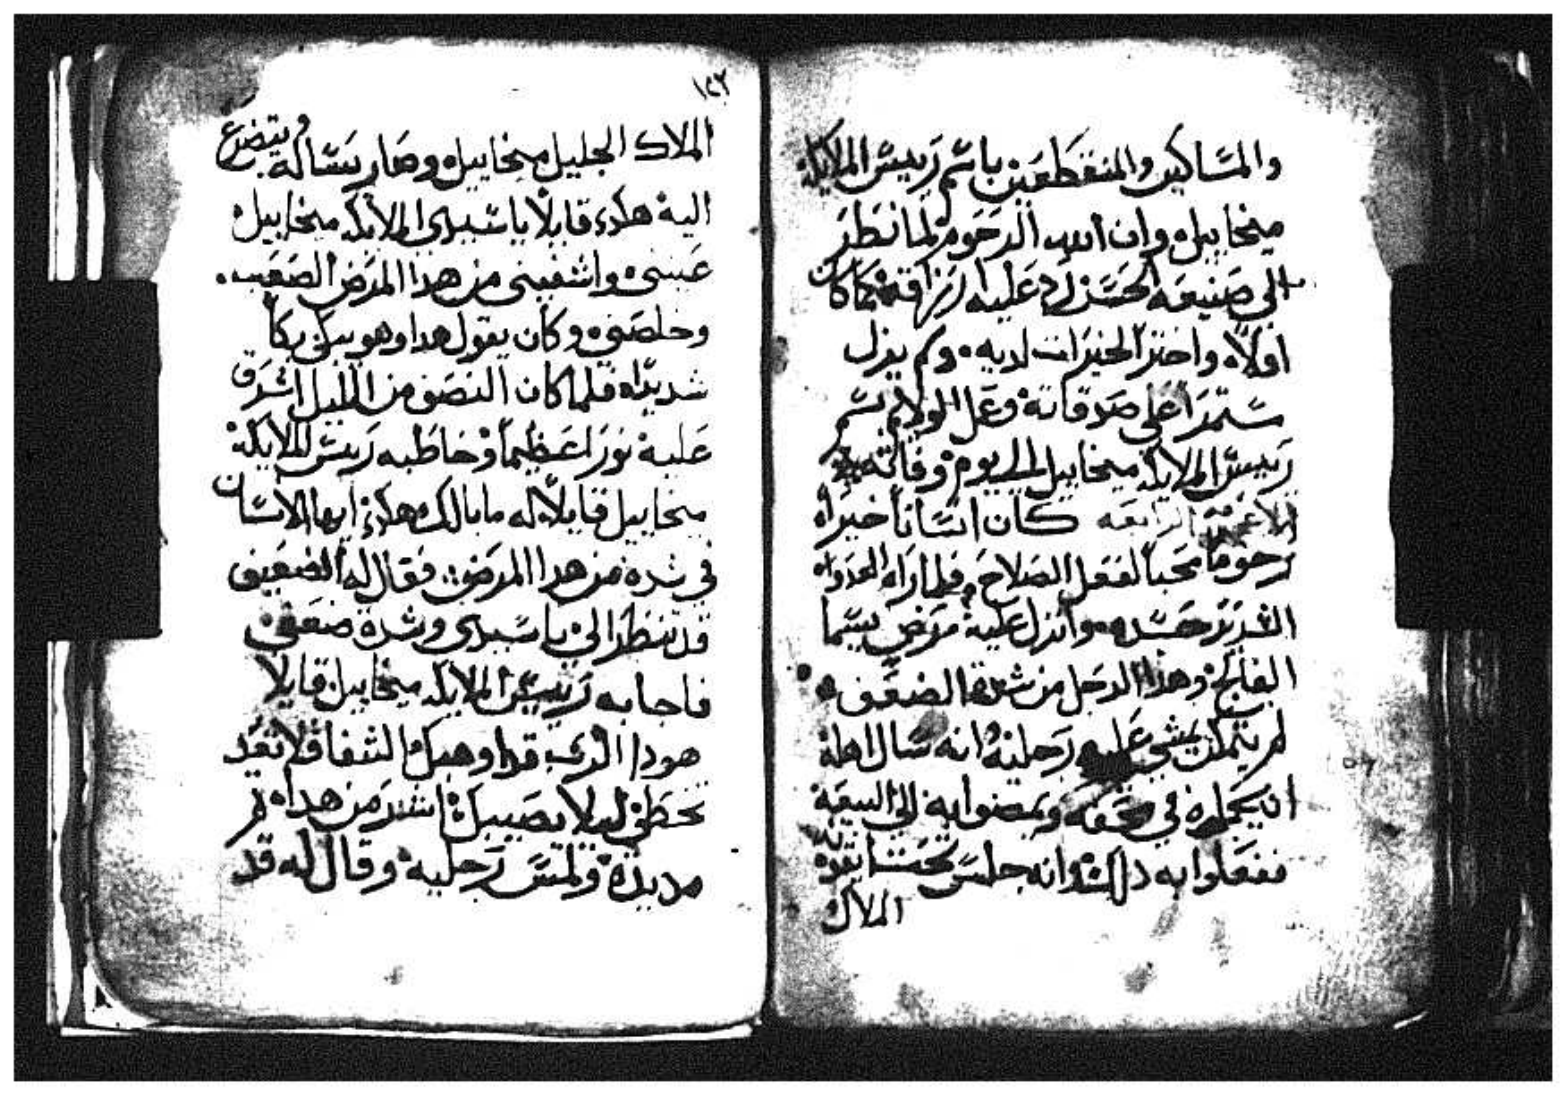 والمساكين والمنقطعين باسم رييس الملايكه
ميخاييل وان الله الرحوم لما نظر
الى صنيعه الحسن رد عليه رزاقته كما كان
اولاً واختر الخيرات لديه ولم يزل
ستمراً على صدقاته وعمل الولايم بسم
رييس الملايكه ميخاييل الى يوم وفاته
الرابعه كان انساناً خيراً
رحوماً محباً لفعل الصلاح فلما راه العدو
الشرير حسده وانزل عليه مرض يسما
الفالج وهذا الرجل من شدة الضعف
لم يتمكن يمشي عليه رجليه انه سال اهله
ان يحملوه في محفه ويمضوا به الى البيعة
ففعلوا به ذلك وانه جلس تحت ايقونة
الملاك
١٤٢
الملاك الجليل ميخاييل وصار يساله ويتضرع
اليه هكذا قايلاً يا سيدي الملايكه ميخاييل
عينني واشفيني من هدا المرض الصعب
وخلصني وكان يقول هدا وهو يبكي بكاً
شديداً فلما كان النصف من الليل اشرق
عليه نوراً عظيماً وخاطبه رييس الملايكة
ميخاييل قايلاً له ما بالك هكذا ايها الانسان
في شدة من هدا المرض فقال له الضعيف
قد تنظر الي يا سيدي وشدة ضعفي
فاجابه رييس الملايكه ميخاييل قايلا
هودا الرب قد اوهبك الشفا فلا تعد
تخطي ليلا يصيبك اشر من هدا ثم
مد يده ولمس رجليه وقال له قد